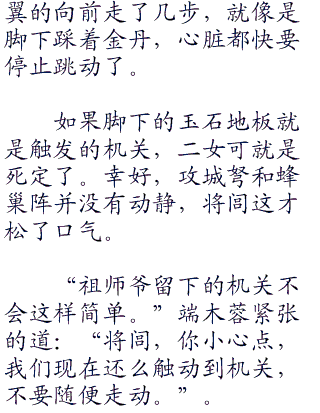 翼的向前走了几步，就像是
脚下踩着金丹，心脏都快要
停止跳动了。
如果脚下的玉石地板就
是触发的机关，二女可就是
死定了。幸好，攻城弩和蜂
巢阵并没有动静，将闾这才
松了口气。
“祖师爷留下的机关不
会这样简单。”端木蓉紧张
的道：“将闾，你小心点，
我们现在还么触动到机关，
不要随便走动。”。